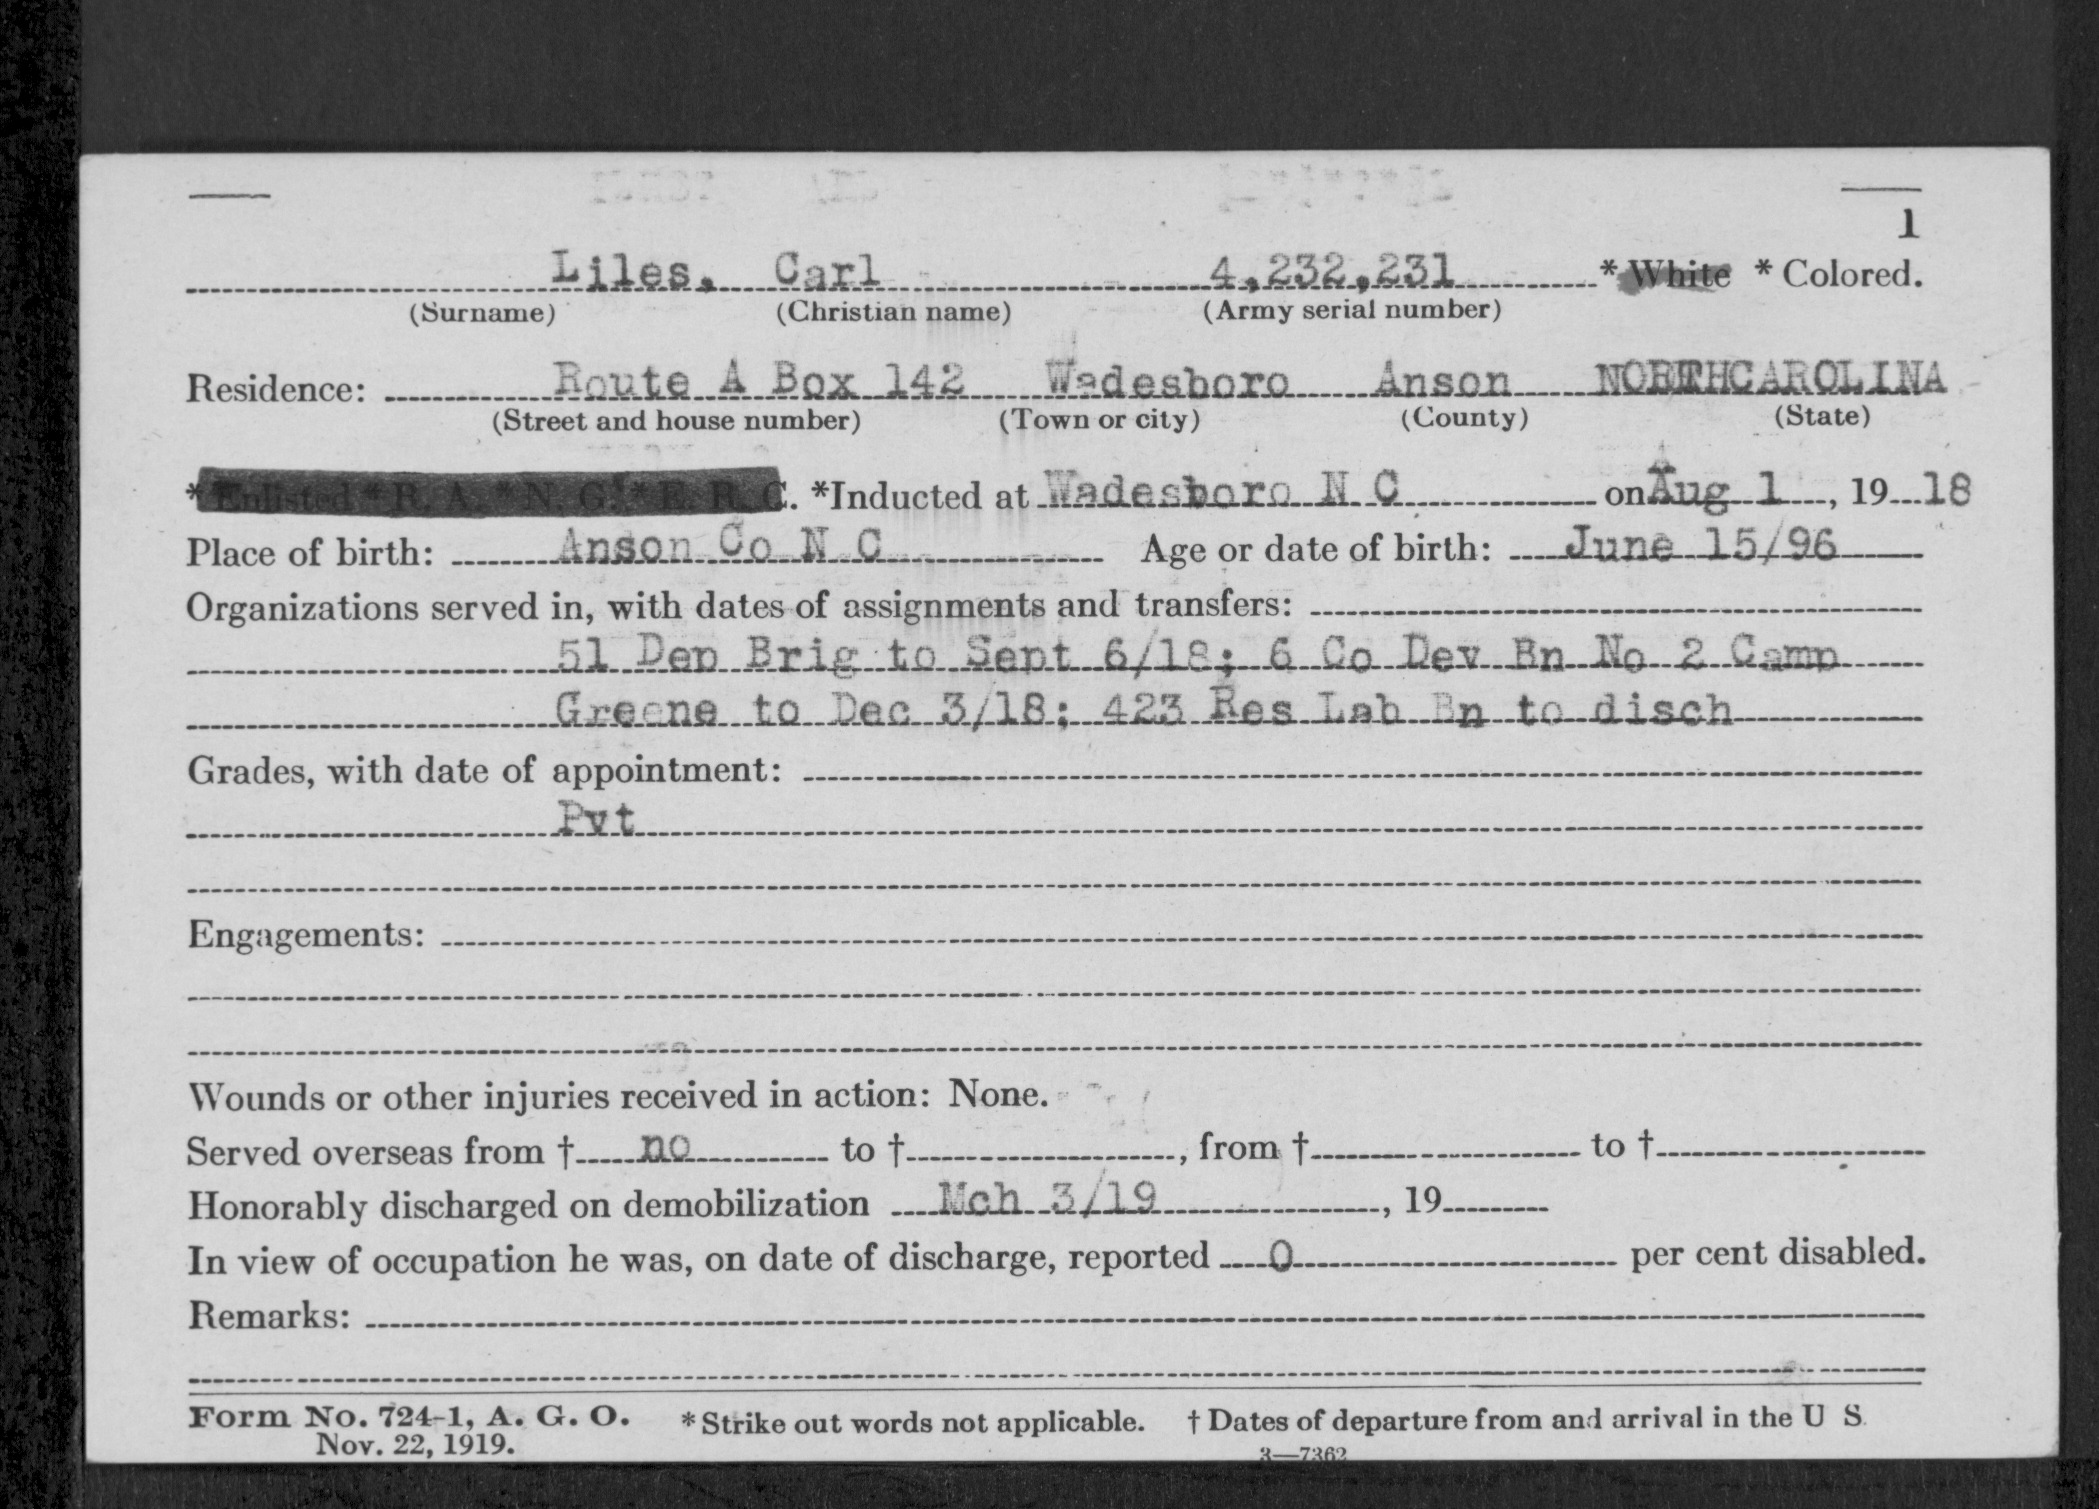 1
Liles, Carl 4,232,231 * White * Colored.
(Surname) (Christian name) (Army serial number)
Residence: Route A Box 142 Wadesboro Anson NORTH CAROLINA
(Street and house number) (Town or city) (County) (State)
* Enlisted * R. A. * N. G. * E. R. C. *Inducted at Wadesboro N C on Aug 1, 19 18
Place of birth: Anson Co N C Age or date of birth: June 15/96
Organizations served in, with dates of assignments and transfers:
51 Dep Brig to Sept 6/18; 6 Co Dev Bn No 2 Camp
Greene to Dec 3/18; 423 Res Lab Bn to disch
Grades, with date of appointment:
Pvt
Engagements:
Wounds or other injuries received in action: None.
Served overseas from † no to †, from † to †
Honorably discharged on demobilization Mch 3/19, 19
In view of occupation he was, on date of discharge, reported 0 per cent disabled.
Remarks:
Form No. 724-1, A. G. O. * Strike out words not applicable. † Dates of departure from and arrival in the U S.
Nov. 22, 1919. 3—7362